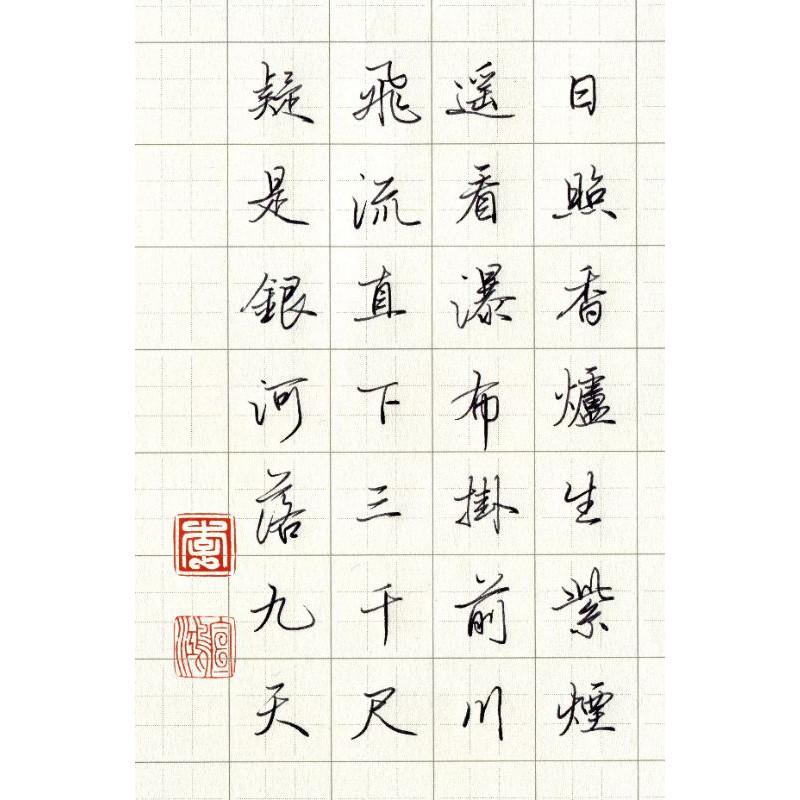 日照香爐生紫煙
遥看瀑布掛前川
飛流直下三千尺
疑是銀河落九天